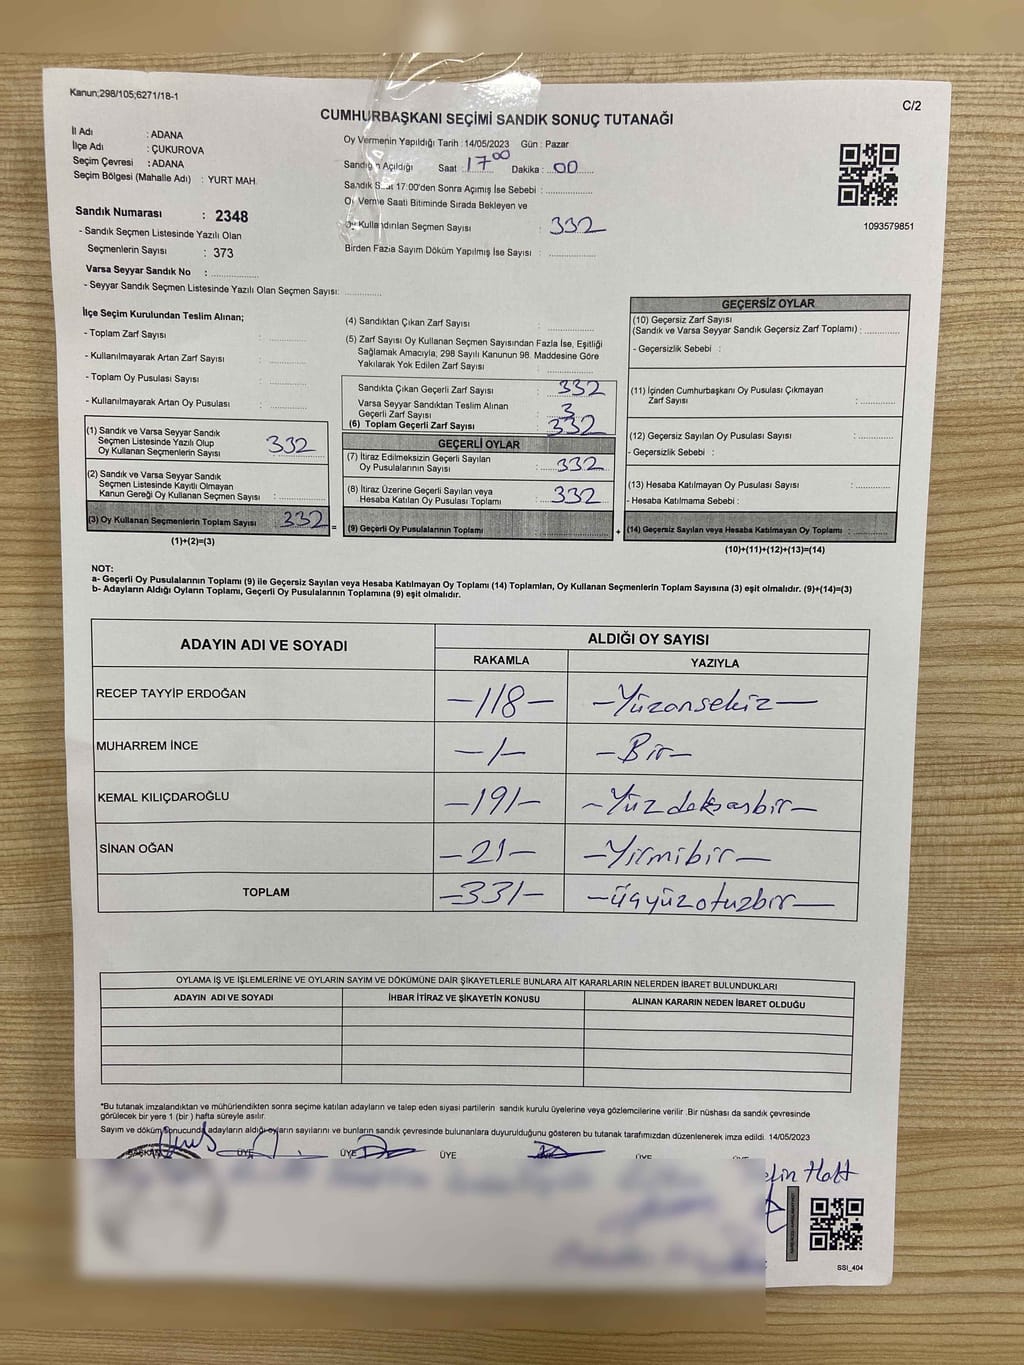 Kanun;298/105;6271/18-1
C/2
CUMHURBAŞKANI SEÇİMİ SANDIK SONUÇ TUTANAĞI
İl Adı : ADANA
İlçe Adı : ÇUKUROVA
Seçim Çevresi : ADANA
Seçim Bölgesi (Mahalle Adı) : YURT MAH
Sandık Numarası : 2348
- Sandık Seçmen Listesinde Yazılı Olan
Seçmenlerin Sayısı : 373
Varsa Seyyar Sandık No : ..............
- Seyyar Sandık Seçmen Listesinde Yazılı Olan Seçmen Sayısı: ............
Oy Vermenin Yapıldığı Tarih :14/05/2023 Gün : Pazar
Sandığın Açıldığı Saat : 17 00 Dakika : 00
Sandık Saat 17:00'den Sonra Açımış İse Sebebi : ..............
Oy Verme Saati Bitiminde Sırada Bekleyen ve
Oy Kullandırılan Seçmen Sayısı : 332
Birden Fazla Sayım Döküm Yapılmış İse Sayısı : ..............
1093579851
İlçe Seçim Kurulundan Teslim Alınan;
- Toplam Zarf Sayısı : ............
- Kullanılmayarak Artan Zarf Sayısı : ............
- Toplam Oy Pusulası Sayısı : ............
- Kullanılmayarak Artan Oy Pusulası : ............
(1) Sandık ve Varsa Seyyar Sandık
Seçmen Listesinde Yazılı Olup
Oy Kullanan Seçmenlerin Sayısı 332
(2) Sandık ve Varsa Seyyar Sandık
Seçmen Listesinde Kayıtlı Olmayan
Kanun Gereği Oy Kullanan Seçmen Sayısı : ............
(3) Oy Kullanan Seçmenlerin Toplam Sayısı 332 =
(1)+(2)=(3)
(4) Sandıktan Çıkan Zarf Sayısı : ............
(5) Zarf Sayısı Oy Kullanan Seçmen Sayısından Fazla İse, Eşitliği
Sağlamak Amacıyla; 298 Sayılı Kanunun 98. Maddesine Göre
Yakılarak Yok Edilen Zarf Sayısı : ............
Sandıkta Çıkan Geçerli Zarf Sayısı : 332
Varsa Seyyar Sandıktan Teslim Alınan
Geçerli Zarf Sayısı : 3
(6) Toplam Geçerli Zarf Sayısı : 332
GEÇERLİ OYLAR
(7) İtiraz Edilmeksizin Geçerli Sayılan
Oy Pusulalarının Sayısı : 332
(8) İtiraz Üzerine Geçerli Sayılan veya
Hesaba Katılan Oy Pusulası Toplamı : 332
(9) Geçerli Oy Pusulalarının Toplamı : ............ +
GEÇERSİZ OYLAR
(10) Geçersiz Zarf Sayısı
(Sandık ve Varsa Seyyar Sandık Geçersiz Zarf Toplamı) : ............
- Geçersizlik Sebebi :
(11) İçinden Cumhurbaşkanı Oy Pusulası Çıkmayan
Zarf Sayısı : ............
(12) Geçersiz Sayılan Oy Pusulası Sayısı : ............
- Geçersizlik Sebebi :
(13) Hesaba Katılmayan Oy Pusulası Sayısı : ............
- Hesaba Katılmama Sebebi :
(14) Geçersiz Sayılan veya Hesaba Katılmayan Oy Toplamı : ............
(10)+(11)+(12)+(13)=(14)
NOT:
a- Geçerli Oy Pusulalarının Toplamı (9) ile Geçersiz Sayılan veya Hesaba Katılmayan Oy Toplamı (14) Toplamları, Oy Kullanan Seçmenlerin Toplam Sayısına (3) eşit olmalıdır. (9)+(14)=(3)
b- Adayların Aldığı Oyların Toplamı, Geçerli Oy Pusulalarının Toplamına (9) eşit olmalıdır.
ADAYIN ADI VE SOYADI ALDIĞI OY SAYISI
RAKAMLA YAZIYLA
RECEP TAYYİP ERDOĞAN -118- -Yüzonsekiz-
MUHARREM İNCE -1- -Bir-
KEMAL KILIÇDAROĞLU -191- -Yüzdoksanbir-
SİNAN OĞAN -21- -Yirmibir-
TOPLAM -331- -üçyüzotuzbir-
OYLAMA İŞ VE İŞLEMLERİNE VE OYLARIN SAYIM VE DÖKÜMÜNE DAİR ŞİKAYETLERLE BUNLARA AİT KARARLARIN NELERDEN İBARET BULUNDUKLARI
ADAYIN ADI VE SOYADI İHBAR İTİRAZ VE ŞİKAYETİN KONUSU ALINAN KARARIN NEDEN İBARET OLDUĞU
*Bu tutanak imzalandıktan ve mühürlendikten sonra seçime katılan adayların ve talep eden siyasi partilerin sandık kurulu üyelerine veya gözlemcilerine verilir .Bir nüshası da sandık çevresinde
görülecek bir yere 1 (bir ) hafta süreyle asılır.
Sayım ve döküm sonucunda adayların aldığı oyların sayılarını ve bunların sandık çevresinde bulunanlara duyurulduğunu gösteren bu tutanak tarafımızdan düzenlenerek imza edildi. 14/05/2023
BAŞKAN ÜYE ÜYE ÜYE ÜYE
SSI_404